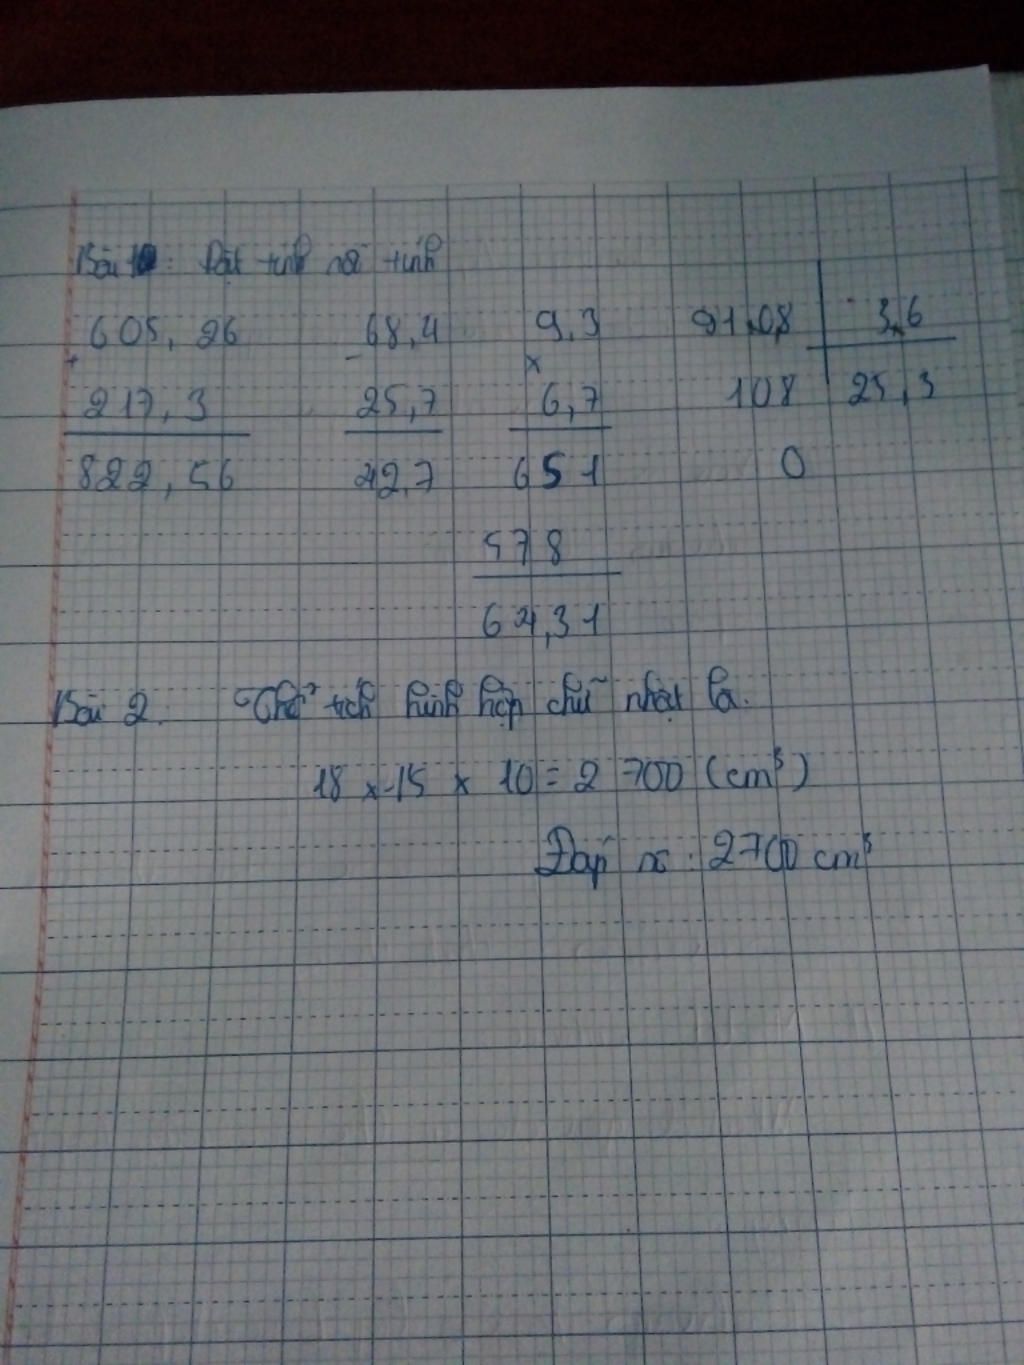 Bài 1: Đặt tính rồi tính
605,26 68,4 9,3 91,08 3,6
+ - x
217,3 25,7 6,7 108 25,3
822,56 42,7 651 0
578
62,31
Bài 2. Thể tích hình hộp chữ nhật là.
18 x 15 x 10 = 2 700 (cm³)
Đáp số: 2700 cm³